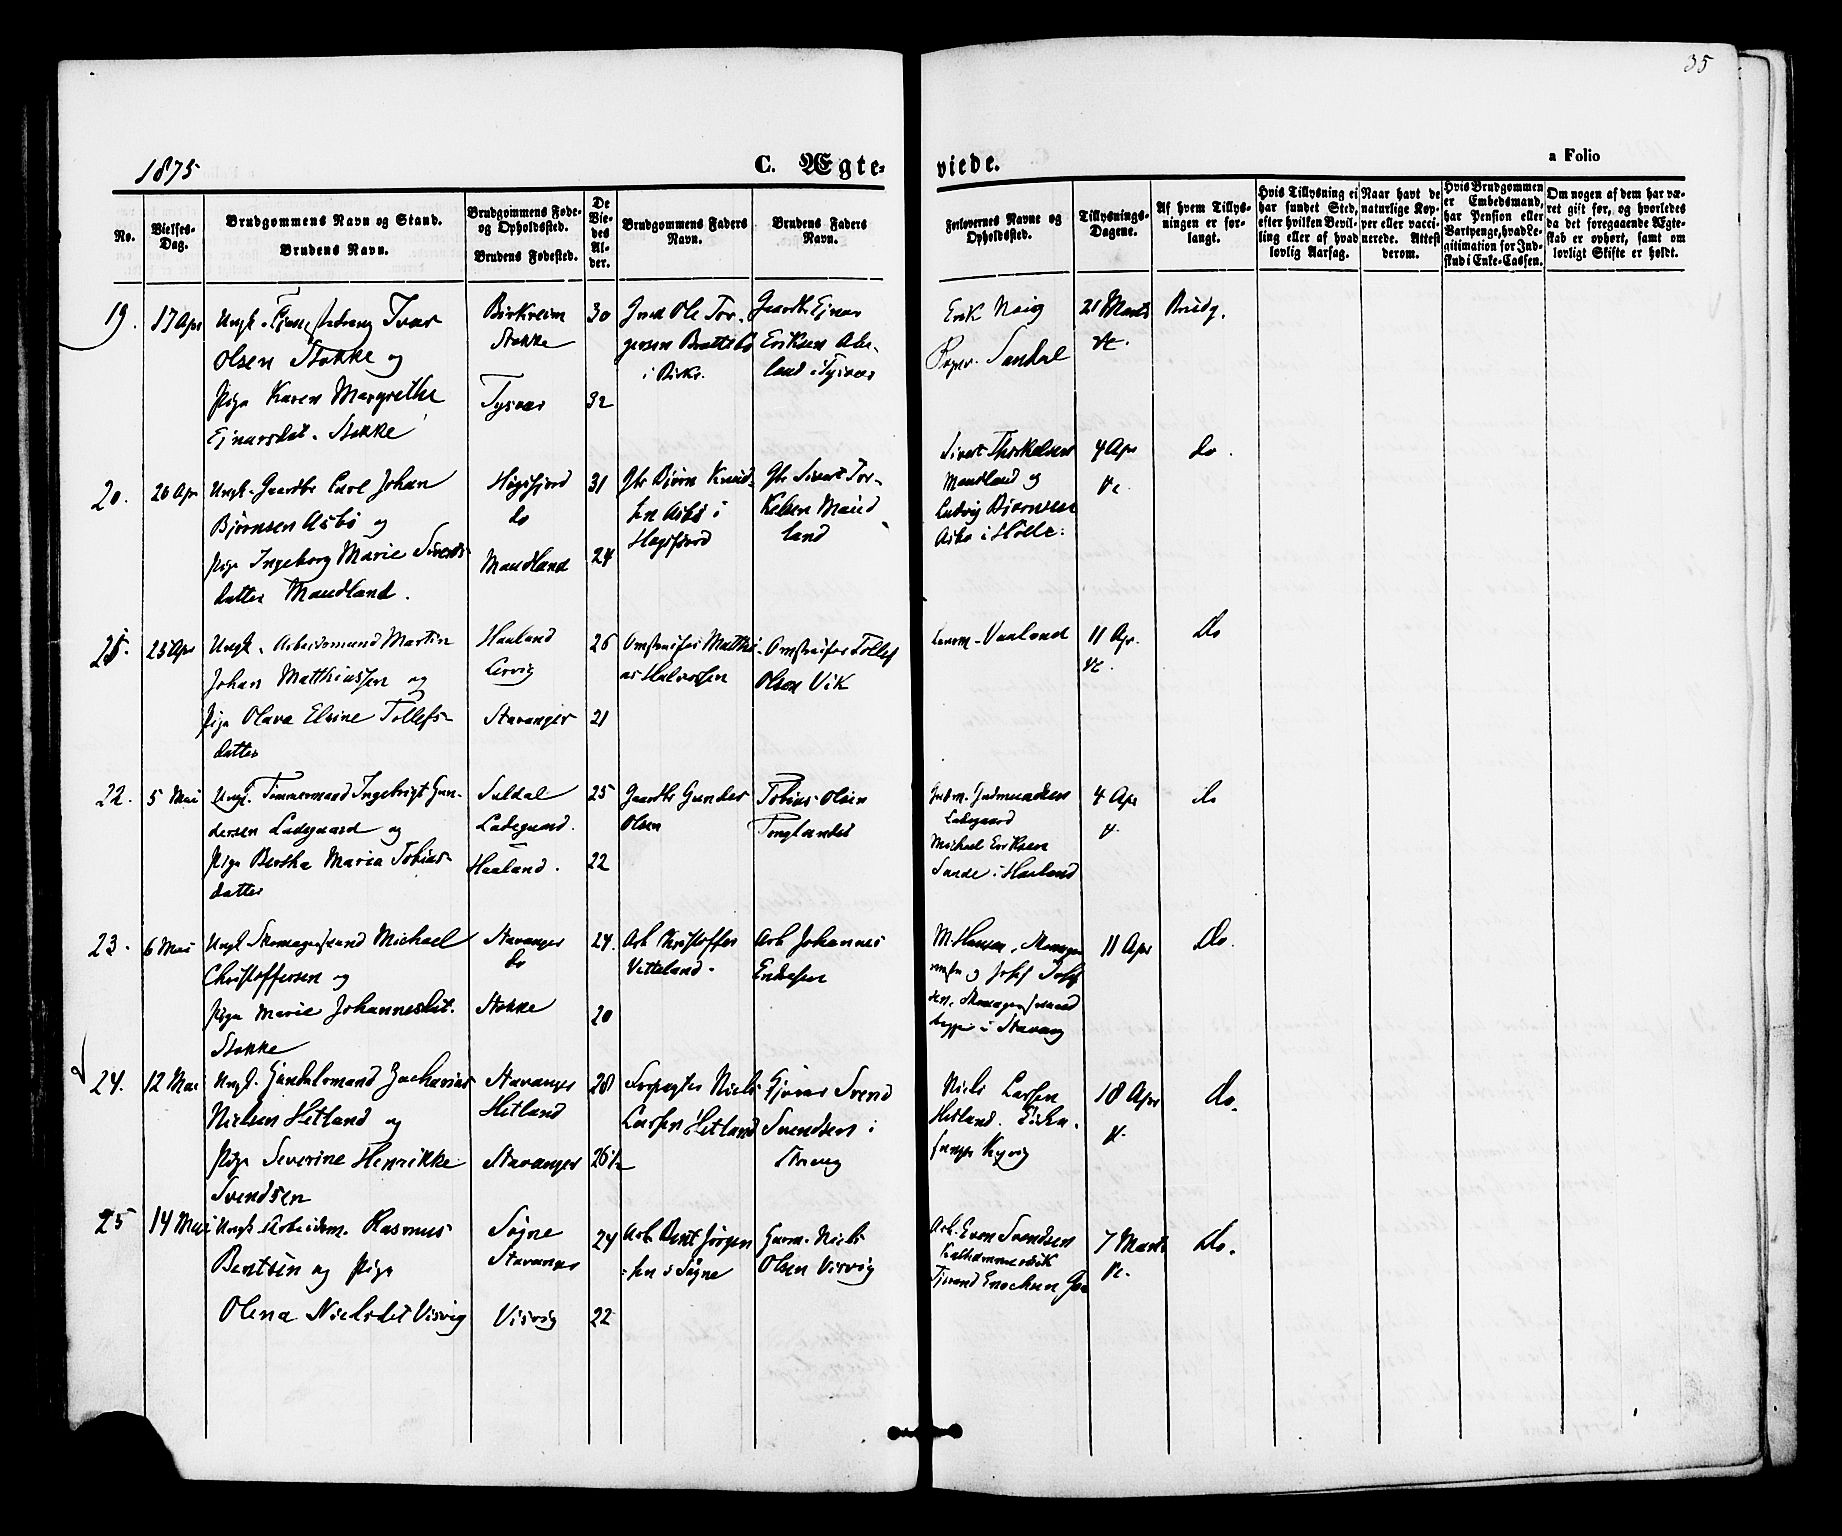 35
1875
C. Ægte-
viede.
a Folio
No.
Vielses-
Dag.
Brudgommens Navn og Stand.
Brudens Navn.
Brudgommens Føde-
og Opholdssted.
Brudens Fødested.
De
Vie-
des
Al-
der.
Brudgommens Faders
Navn.
Brudens Faders
Navn.
Forlovernes Navne og
Opholdssted.
Tillysnings-
Dagene.
Af hvem Tillys-
ningen er for-
langt.
Hvis Tillysning ei
har fundet Sted,
efter hvilken Bevil-
ling eller af hvad
lovlig Aarsag.
Naar havt de
naturlige Kop-
per eller vacci-
nerede. Attest
derom.
Hvis Brudgommen
er Embedsmand,
har Pension eller
Vartpenge, hvad Le-
gitimation for Ind-
skud i Enke-Cassen.
Om nogen af dem har væ-
ret gift før, og hvorledes
da det foregaaende Ægte-
skab er ophørt, samt om
lovligt Skifte er holdt.
19.
17 Apr
Ungk. Tjenestedreng Ivar
Olsen Stokke og
Pige Karen Margrethe
Ejnarsdat. Stokke
Birkreim
Stokke
Tysvær
30
32
Ole Tor-
gersen Brattebø
i Birkr.
Gaardbr Ejnar
Eriksen
land i Tysvær
Erik
Sandal
21 Marts
&c.
Brudg.
20.
20 Apr
Ungk. Gaardbr Carl Johan
Bjørnsen Asbø og
Pige Ingeborg Marie Siverts-
datter Maudland.
Høgsfjord
do
Maudland
31
24
Gbr Bjørn Knud-
sen Asbø i
Høgsfjord
Gbr Sivert Tor-
kelsen Maud
land
Sivert Thorkelsen
Maudland og
Ludvig Bjørnsen
Asbø i Hølle.
4 Apr
&c
do.
21.
25 Apr
Ungk. Arbeidsmand Martin
Johan Matthiassen og
Pige Olava Elvine Tollefs-
datter
Haaland
Lervig
Stavanger
26
21
Omstreifer Matthi
as Halvorsen
Omstreifer Tollef
Olsen Vik
Vaaland
11 Apr.
&c.
Do
22.
5 Mai
Ungk. Timmermand Ingebrigt Gun-
dersen Ladegaard og
Pige Bertha Maria Tobias-
datter
Suldal
Ladegaard.
Haaland.
25
22
Gaardbr Gunder
Olsen
Tobias Olsen
Tonglandet
Gudm. Gudmundsen
Ladegaard
Michael Eriksen
Sande i Haaland
4 Apr
&.
do
23.
6 Mai
Ungk Skomagersvend Michael
Christoffersen og
Pige Marie Johannesdat.
Stokke
Stavanger
do
Stokke
24.
20
Arb Kristoffer
Vetteland.
Arb Johannes
Endresen
M. Hansen, Skomager
Josef
sen, Skomagersvend
begge i Stavang
11 Apr
Do.
24.
12 Mai
Ungk. Handelsmand Zacharias
Nielsen Hetland og
Pige Severine Henrikke
Svendsen
Stavanger
Hetland
Stavanger
28
26½
Forpagter Niels
Larsen Hetland
Gjørtler Svend
Svendsen i
Stavang
Niels Larsen
Hetland.
18 Apr
&.
Do.
25
14 Mai
Ungk. Arbeidsm. Rasmus
Bentsen og Pige
Olena Nielsdat Visvig
Søgne
Stavanger
Visvig
24
22
Arb. Bent Jørgen
sen i Søgne
Gaarm. Niels
Olsen Visvig
Arb. Even Svendsen
Kalhammervik
Enochsen
7 Marts
&c.
Do.